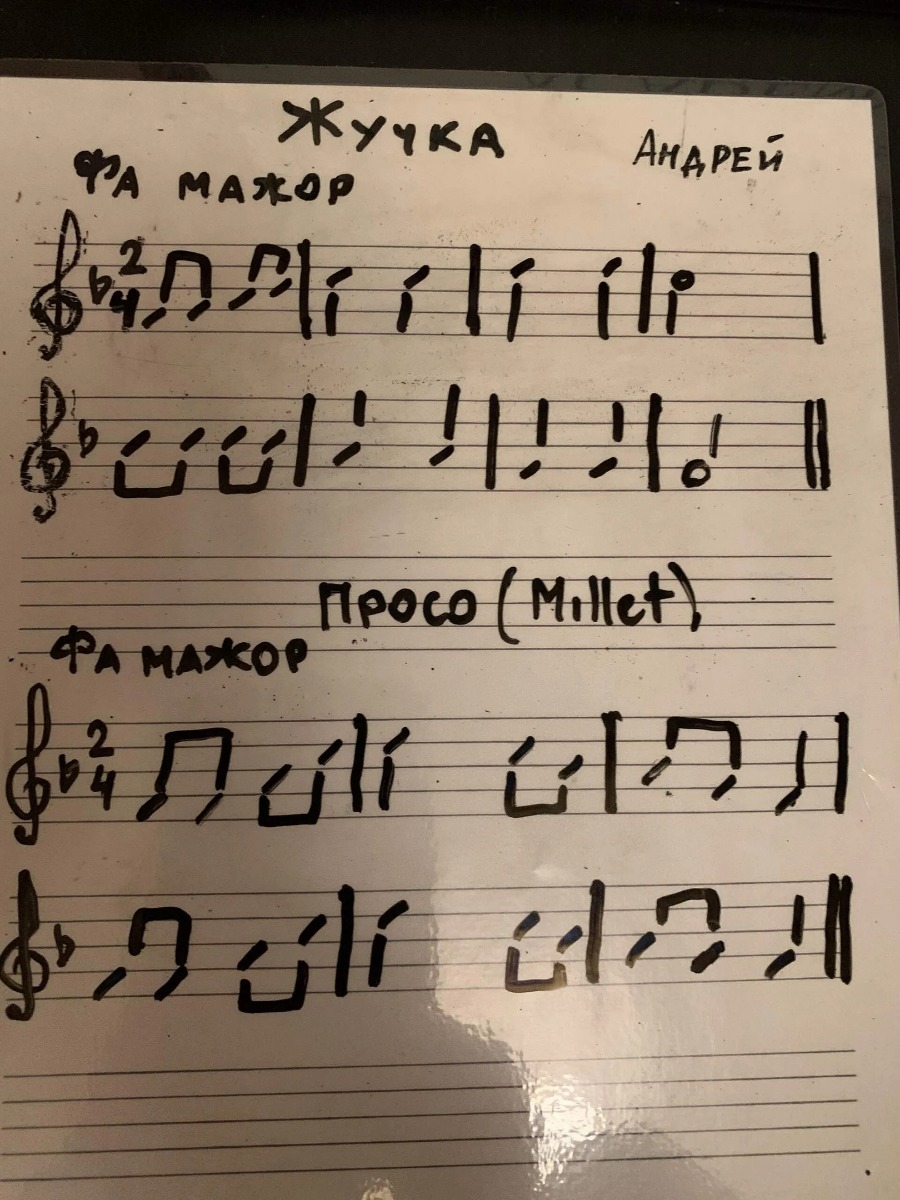 Жучка
Андрей
Фа мажор
2
4
Просо (Millet)
Фа мажор
2
4